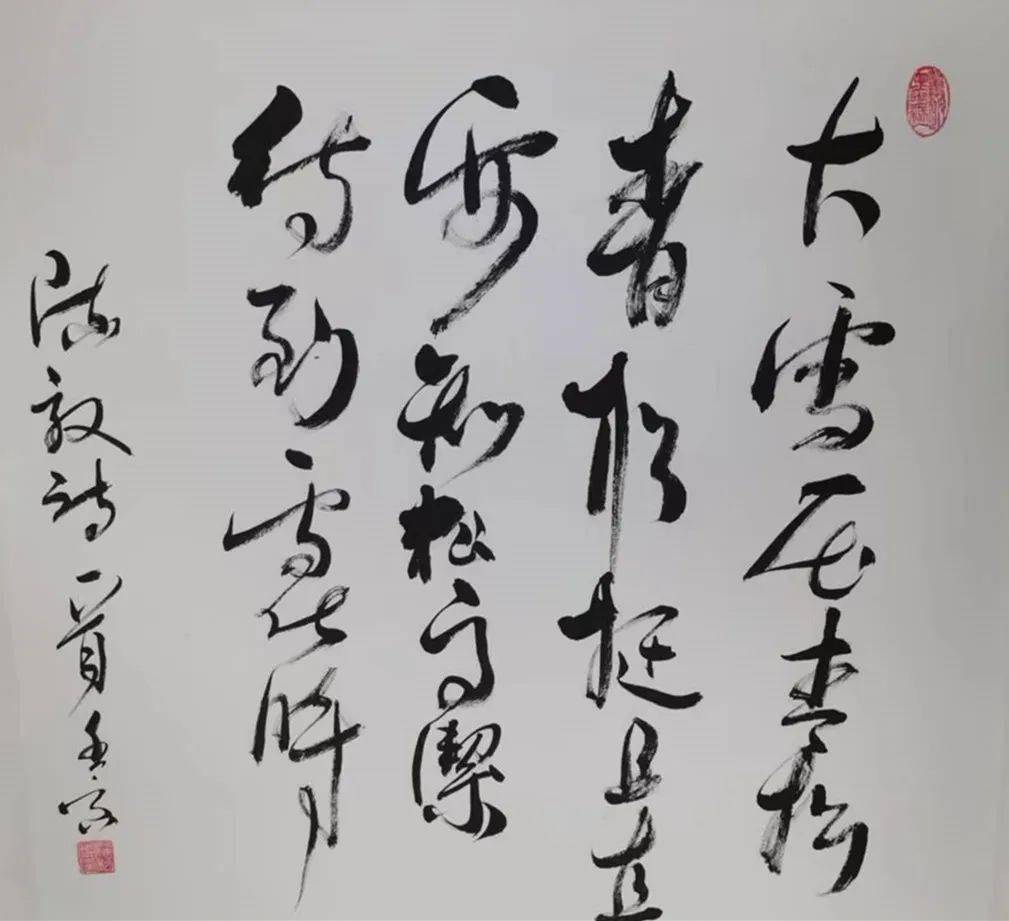 大雪压青松
青松挺且直
要知松高潔
待到雪化時
陈毅诗一首 壬寅